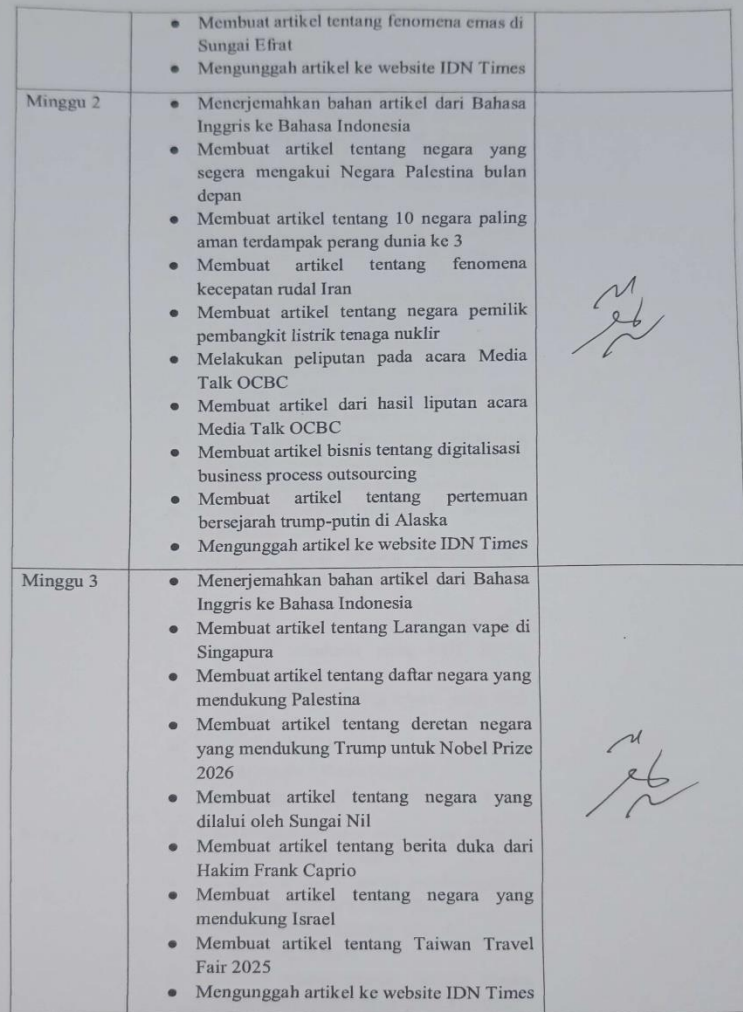 Membuat artikel tentang fenomena emas di
Sungai Efrat
Mengunggah artikel ke website IDN Times
Minggu 2
Menerjemahkan bahan artikel dari Bahasa
Inggris ke Bahasa Indonesia
Membuat artikel tentang negara yang
segera mengakui Negara Palestina bulan
depan
Membuat artikel tentang 10 negara paling
aman terdampak perang dunia ke 3
Membuat artikel tentang fenomena
kecepatan rudal Iran
Membuat artikel tentang negara pemilik
pembangkit listrik tenaga nuklir
Melakukan peliputan pada acara Media
Talk OCBC
Membuat artikel dari hasil liputan acara
Media Talk OCBC
Membuat artikel bisnis tentang digitalisasi
business process outsourcing
Membuat artikel tentang pertemuan
bersejarah trump-putin di Alaska
Mengunggah artikel ke website IDN Times
Minggu 3
Menerjemahkan bahan artikel dari Bahasa
Inggris ke Bahasa Indonesia
Membuat artikel tentang Larangan vape di
Singapura
Membuat artikel tentang daftar negara yang
mendukung Palestina
Membuat artikel tentang deretan negara
yang mendukung Trump untuk Nobel Prize
2026
Membuat artikel tentang negara yang
dilalui oleh Sungai Nil
Membuat artikel tentang berita duka dari
Hakim Frank Caprio
Membuat artikel tentang negara yang
mendukung Israel
Membuat artikel tentang Taiwan Travel
Fair 2025
Mengunggah artikel ke website IDN Times